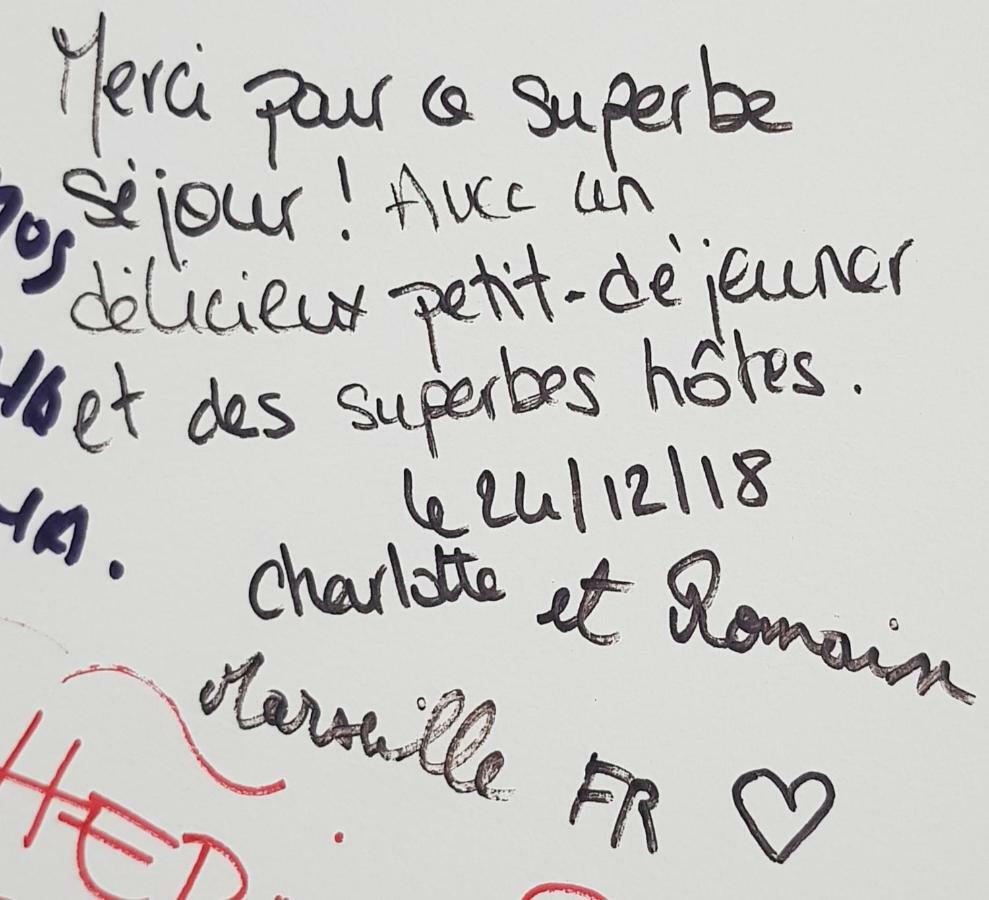 Merci pour ce superbe
séjour ! Avec un
délicieux petit-déjeuner
et des superbes hôtes.
le 24/12/18
Charlotte et Romain
Marseille FR ♡
HED